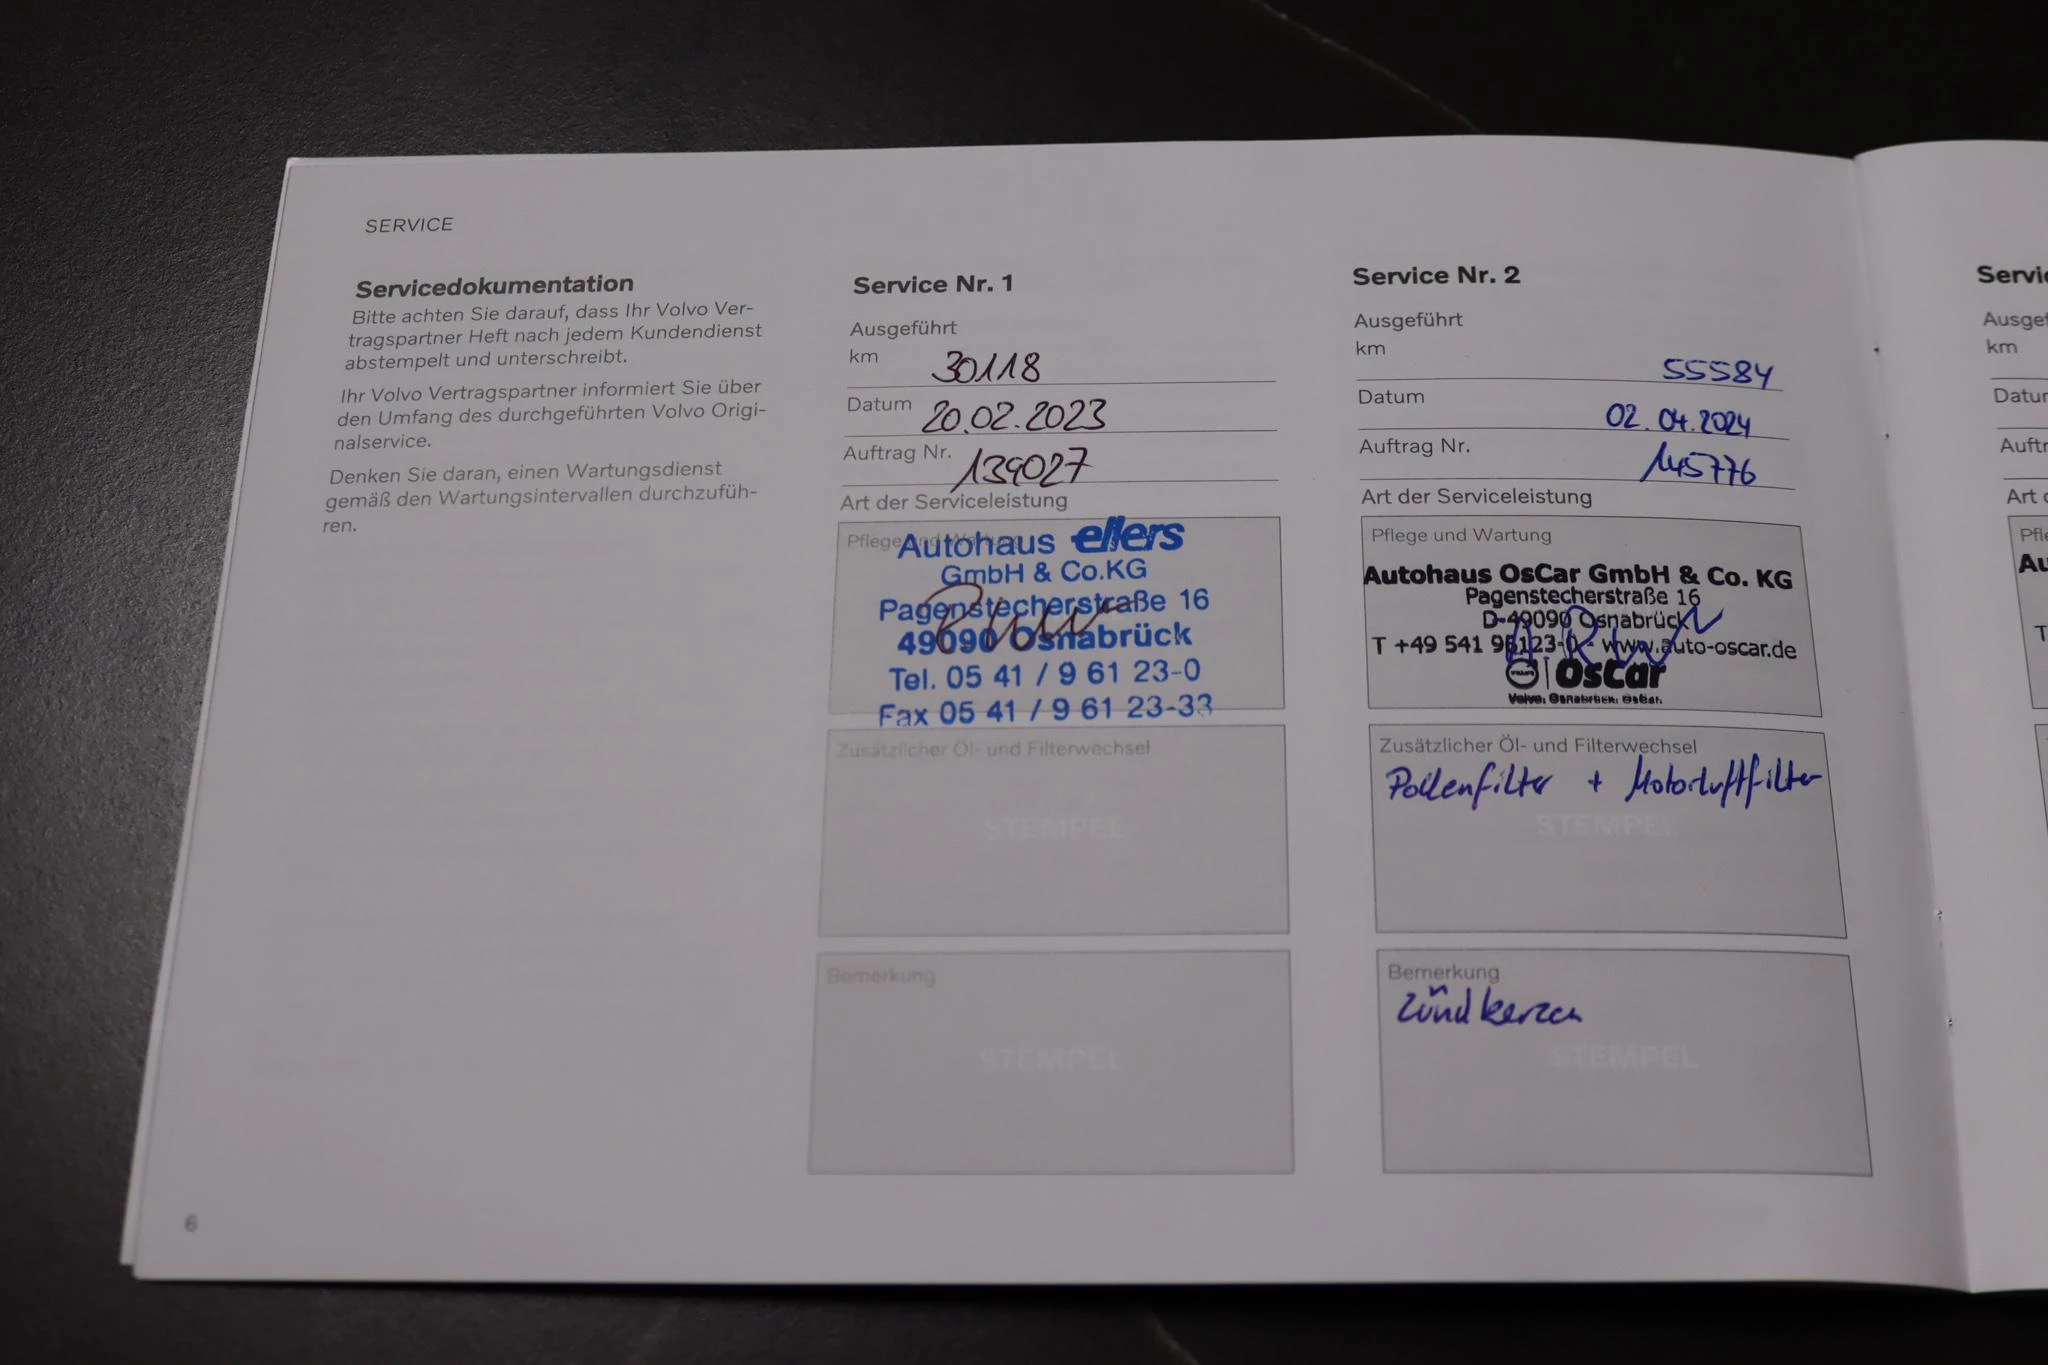 SERVICE
Servicedokumentation
Bitte achten Sie darauf, dass Ihr Volvo Ver-
tragspartner Heft nach jedem Kundendienst
abstempelt und unterschreibt.
Ihr Volvo Vertragspartner informiert Sie über
den Umfang des durchgeführten Volvo Origi-
nalservice.
Denken Sie daran, einen Wartungsdienst
gemäß den Wartungsintervallen durchzufüh-
ren.
6
Service Nr. 1
Ausgeführt
km 30118
Datum 20.02.2023
Auftrag Nr. 139027
Art der Serviceleistung
Pflege und Wartung
Autohaus ellers
GmbH & Co.KG
Pagenstecherstraße 16
49090 Osnabrück
Tel. 05 41 / 9 61 23-0
Fax 05 41 / 9 61 23-33
Zusätzlicher Öl- und Filterwechsel
STEMPEL
Bemerkung
STEMPEL
Service Nr. 2
Ausgeführt
km 55584
Datum 02.04.2024
Auftrag Nr. 145776
Art der Serviceleistung
Pflege und Wartung
Autohaus OsCar GmbH & Co. KG
Pagenstecherstraße 16
D-49090 Osnabrück
T +49 541 96123-0 - www.auto-oscar.de
OsCar
Volvo. Osnabrück. OsCar.
Zusätzlicher Öl- und Filterwechsel
Pollenfilter + Motorluftfilter
STEMPEL
Bemerkung
Zündkerzen
STEMPEL
Servi
Ausgef
km
Datur
Auftr
Art
Pfle
Au
T